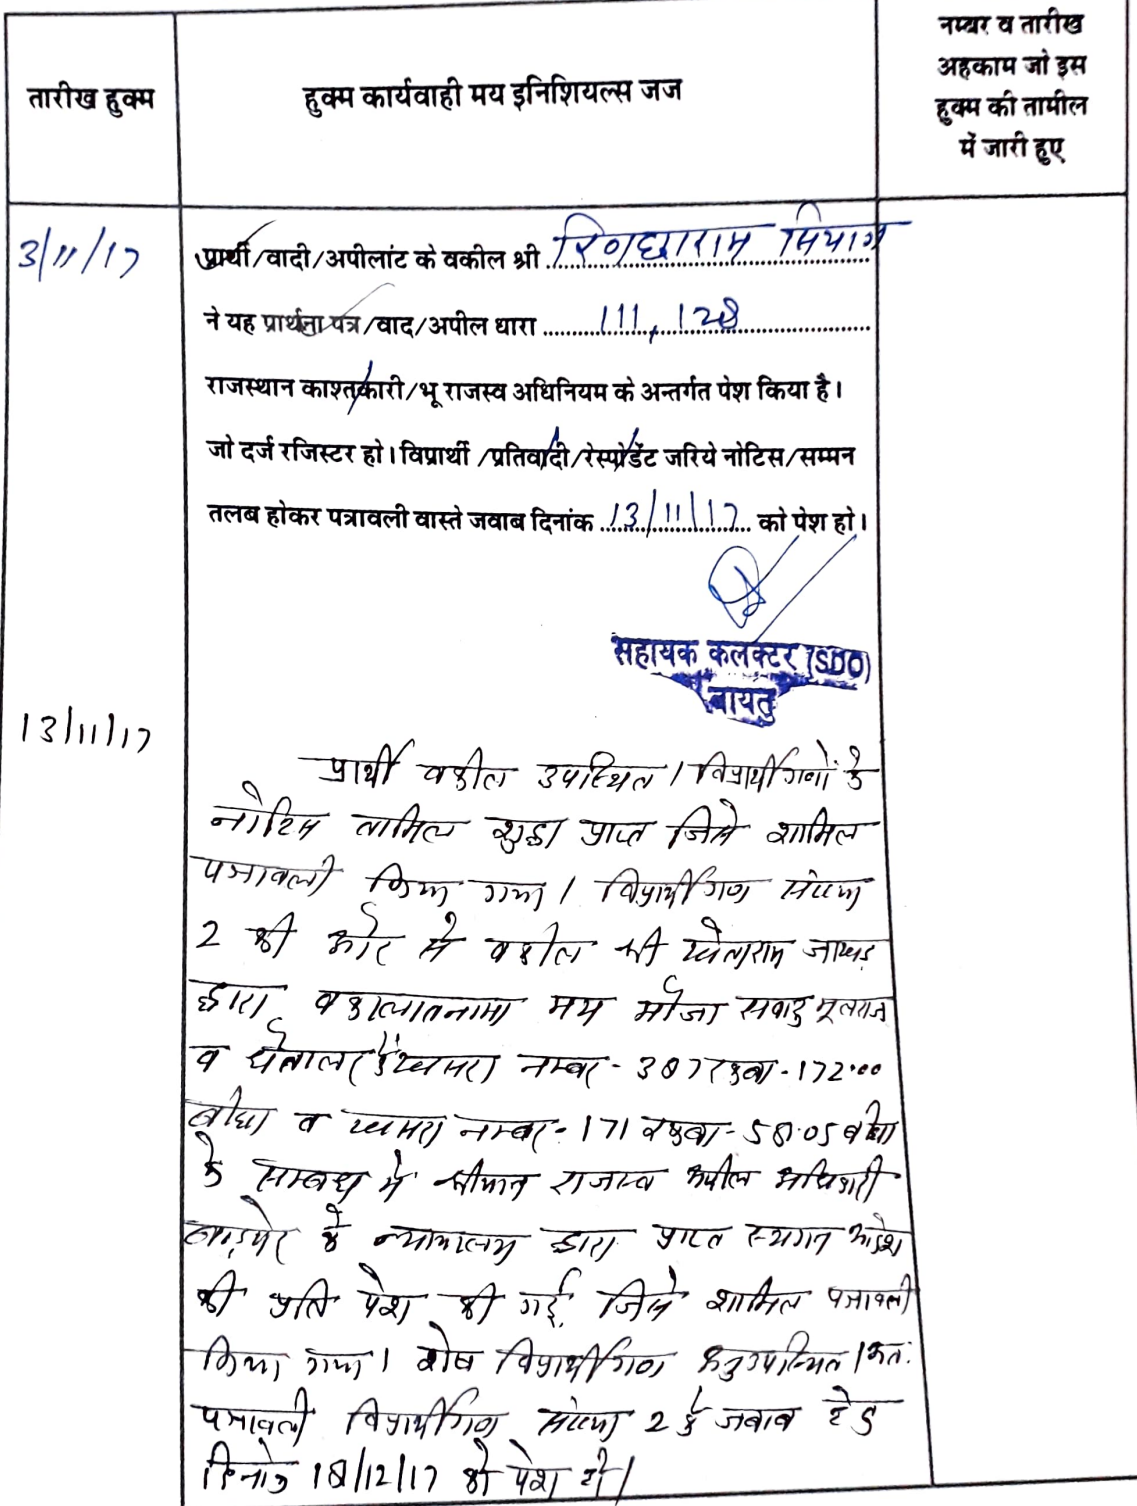 तारीख हुक्म
हुक्म कार्यवाही मय इनिशियल्स जज
नम्बर व तारीख
अहकाम जो इस
हुक्म की तामील
में जारी हुए
3/11/17
प्रार्थी/वादी/अपीलांट के वकील श्री रिणछाराम सियाग
ने यह प्रार्थना पत्र/वाद/अपील धारा 111, 128
राजस्थान काश्तकारी/भू राजस्व अधिनियम के अन्तर्गत पेश किया है।
जो दर्ज रजिस्टर हो। विप्रार्थी/प्रतिवादी/रेस्पोडेंट जरिये नोटिस/सम्मन
तलब होकर पत्रावली वास्ते जवाब दिनांक 13/11/17 को पेश हो।
सहायक कलक्टर (SDO)
बायतु
13/11/17
प्रार्थी वकील उपस्थित। विप्रार्थीगणों के
नोटिस तामिल शुदा प्राप्त जिसे शामिल
पत्रावली किया गया। विप्रार्थीगण संख्या
2 की ओर से वकील श्री खेताराम जाखड़
द्वारा वकालातनामा मय मौजा सवाऊ मूलराज
व खसरा नम्बर - 307 रकबा - 172.00
बीघा व खसरा नम्बर - 171 रकबा - 58.05 बीघा
के सम्बध में श्रीमान राजस्व अपील अधिकारी
बाड़मेर के न्यायालय द्वारा प्राप्त स्थगन आदेश
की प्रति पेश की गई, जिसे शामिल पत्रावली
किया गया। शेष विप्रार्थीगण अनुपस्थित। अतः
पत्रावली विप्रार्थीगण संख्या 2 के जवाब हेतु
दिनांक 18/12/17 को पेश हो।